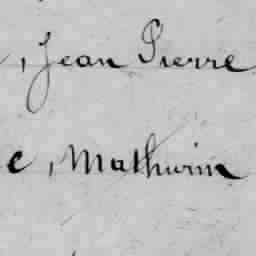 , Jean Pierre
e, Mathurin